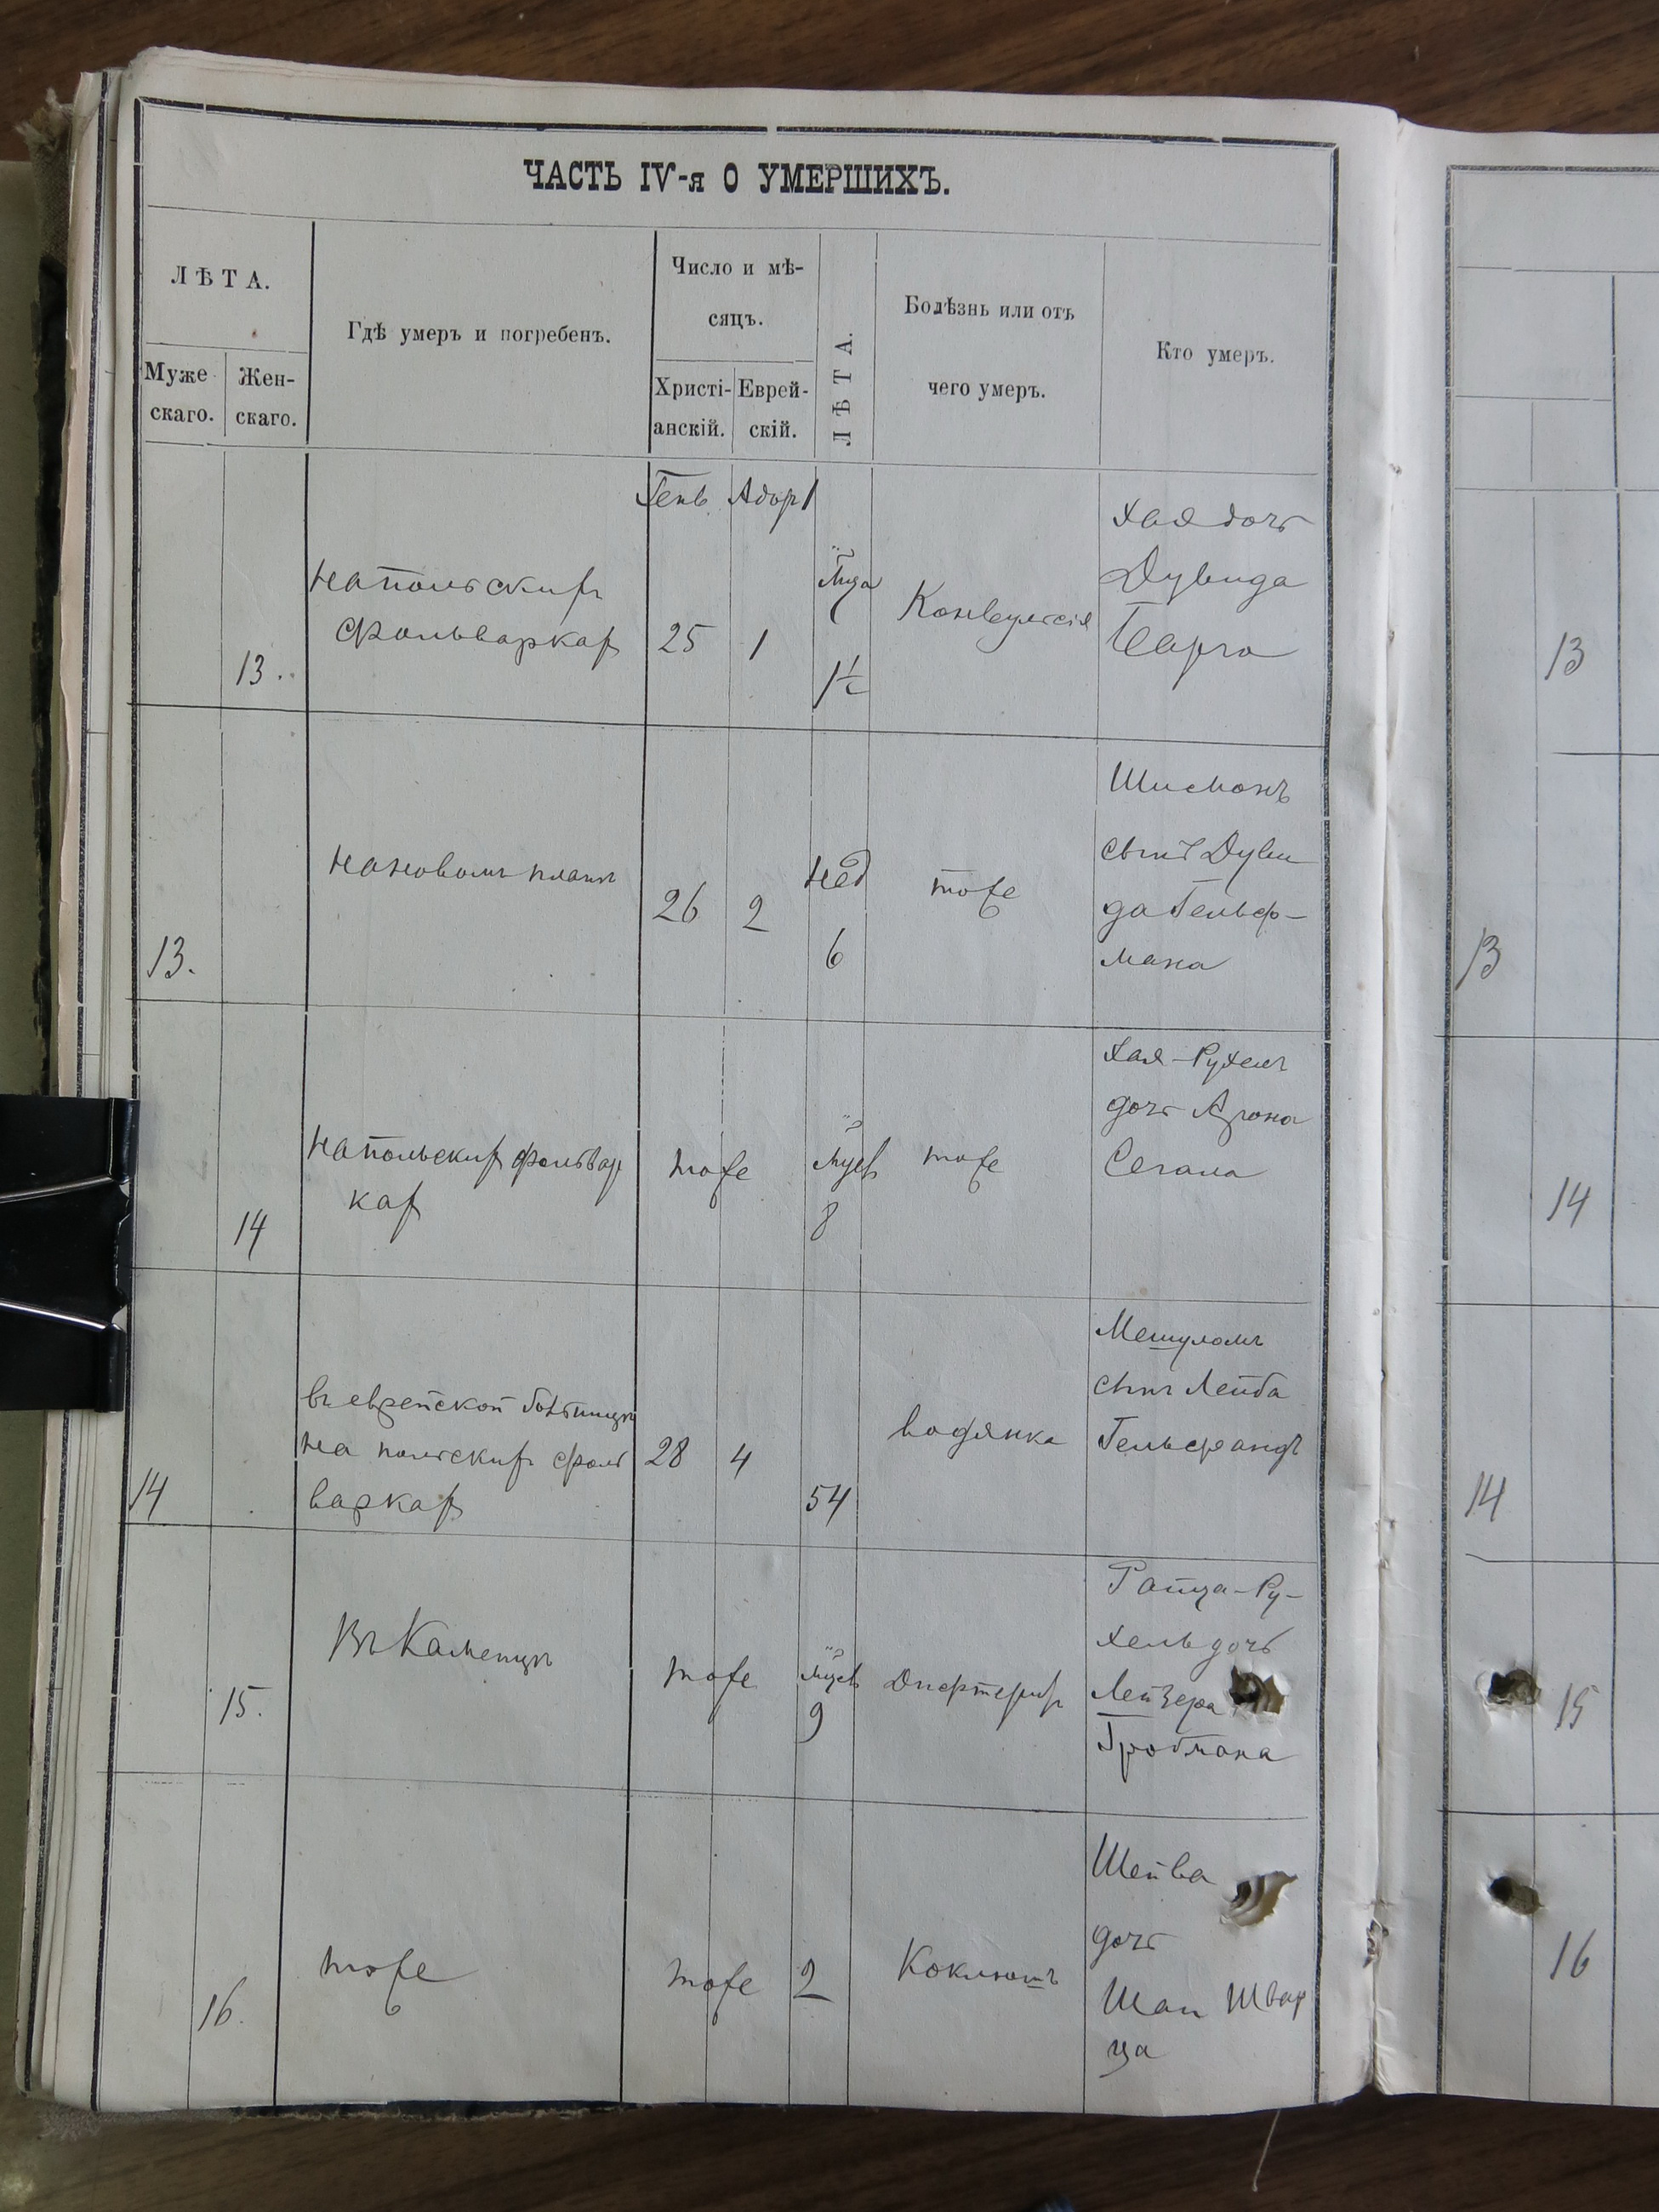 ЧАСТЬ IV-я О УМЕРШИХЪ.
ЛѢТА.
Муже
скаго.
Жен-
скаго.
Гдѣ умеръ и погребенъ.
Число и мѣ-
сяцъ.
Христі-
анскій.
Еврей-
скій.
ЛѢТА.
Болѣзнь или отъ
чего умеръ.
Кто умеръ.
Генв. Адаръ 1
13.
На польскихъ
фольваркахъ
25
1
мца
1½
Конвульсія
Хая дочь
Дувида
Барга
13
13.
На новомъ планѣ
26
2
нед
6
тоже
Шимонъ
сынъ Дуви
да Гельф-
мана
13
14
На польскихъ фольвар
кахъ
тоже
мцевъ
8
тоже
Хая-Рухель
дочь Арона
Сегала
14
14
въ еврейской больницѣ
на польскихъ фоль
варкахъ
28
4
54
водянка
Мешуломъ
сынъ Лейба
Гельфандъ
14
15.
Въ Каменцѣ
тоже
мцевъ
9
Дифтеритъ
Райца-Ру-
хель дочь
Лейзера
Гройсмана
15
16.
тоже
тоже
2
Коклюшъ
Шейва
дочь
Шаи Швар
ца
16